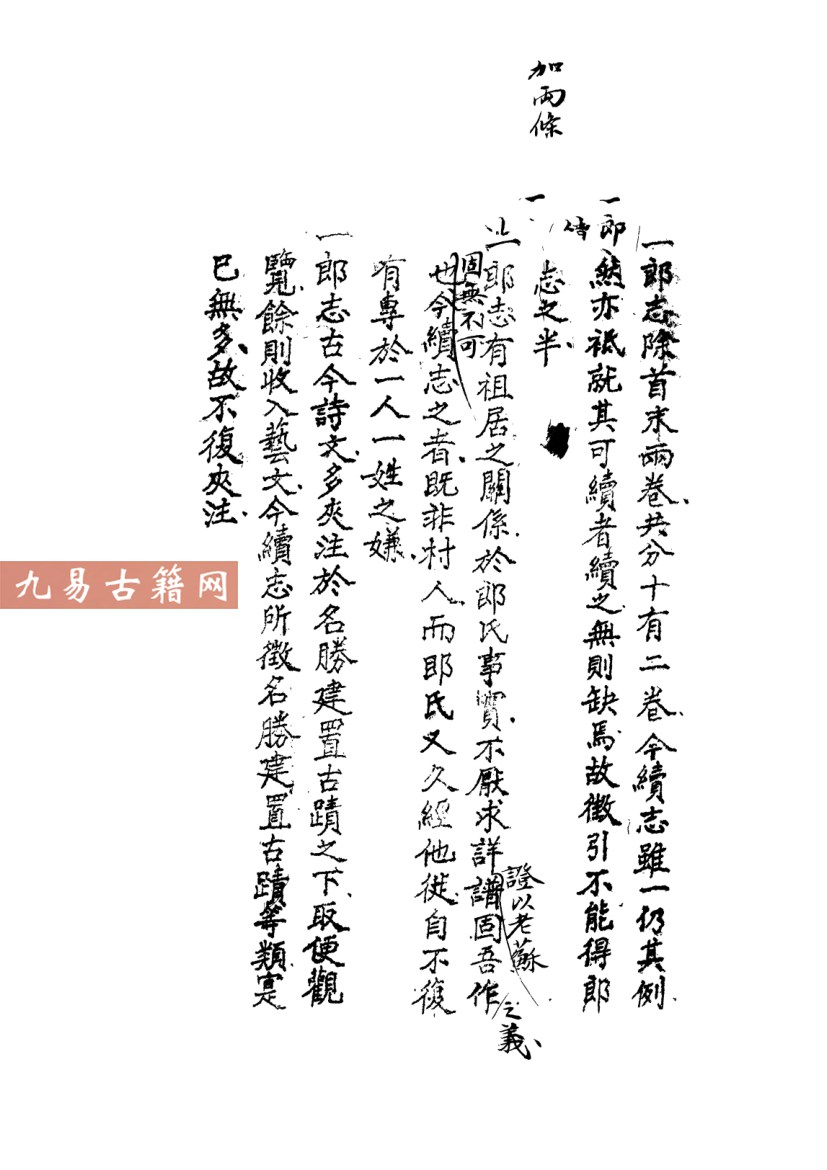 加兩條
一郎志除首末兩卷共分十有二卷今續志雖一仍其例
然亦祗就其可續者續之無則缺焉故徵引不能得郎
志之半
一郎志有祖居之關係於郎氏事實不厭求詳譜固吾作
證以老蘇
之義
固無不可
也今續志之者既非村人而郎氏又久經他徙自不復
有專於一人一姓之嫌
一郎志古今詩文多夾注於名勝建置古蹟之下取便觀
覽餘則收入藝文今續志所徵名勝建置古蹟等類寔
已無多故不復夾注
九易古籍网